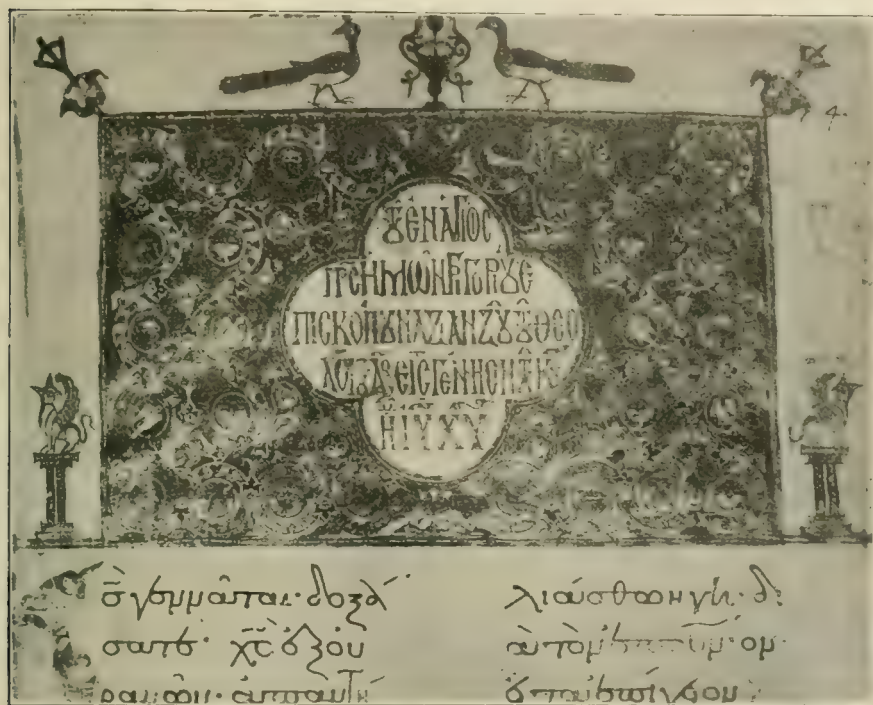 ΤΟΥ ΕΝ ΑΓΙΟΙΣ
ΠΡΣ ΗΜΩΝ ΓΡΗΓΟΡΙΟΥ Ε
ΠΙΣΚΟΠΟΥ ΝΑΖΙΑΝΖΟΥ ΤΟΥ ΘΕΟ
ΛΟΓΟΥ ΕΙΣ ΓΕΝΗΣΙΝ ΤΟΥ ΚΥ
ΗΜ ΙΥ ΧΥ
ς γεννᾶται· δοξά
σατε· χς ἐξ οὐ
ρανῶν· ἀπαντή
λιάσθω ἡ γῆ· δι
ὰ τὸν
ἐπίγειον·